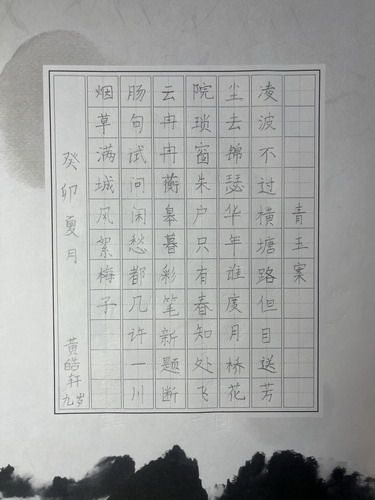 青玉案
凌波不过横塘路但目送芳
尘去锦瑟华年谁度月桥花
院琐窗朱户只有春知处飞
云冉冉蘅皋暮彩笔新题断
肠句试问闲愁都几许一川
烟草满城风絮梅子
癸卯夏月 黄皓轩九岁